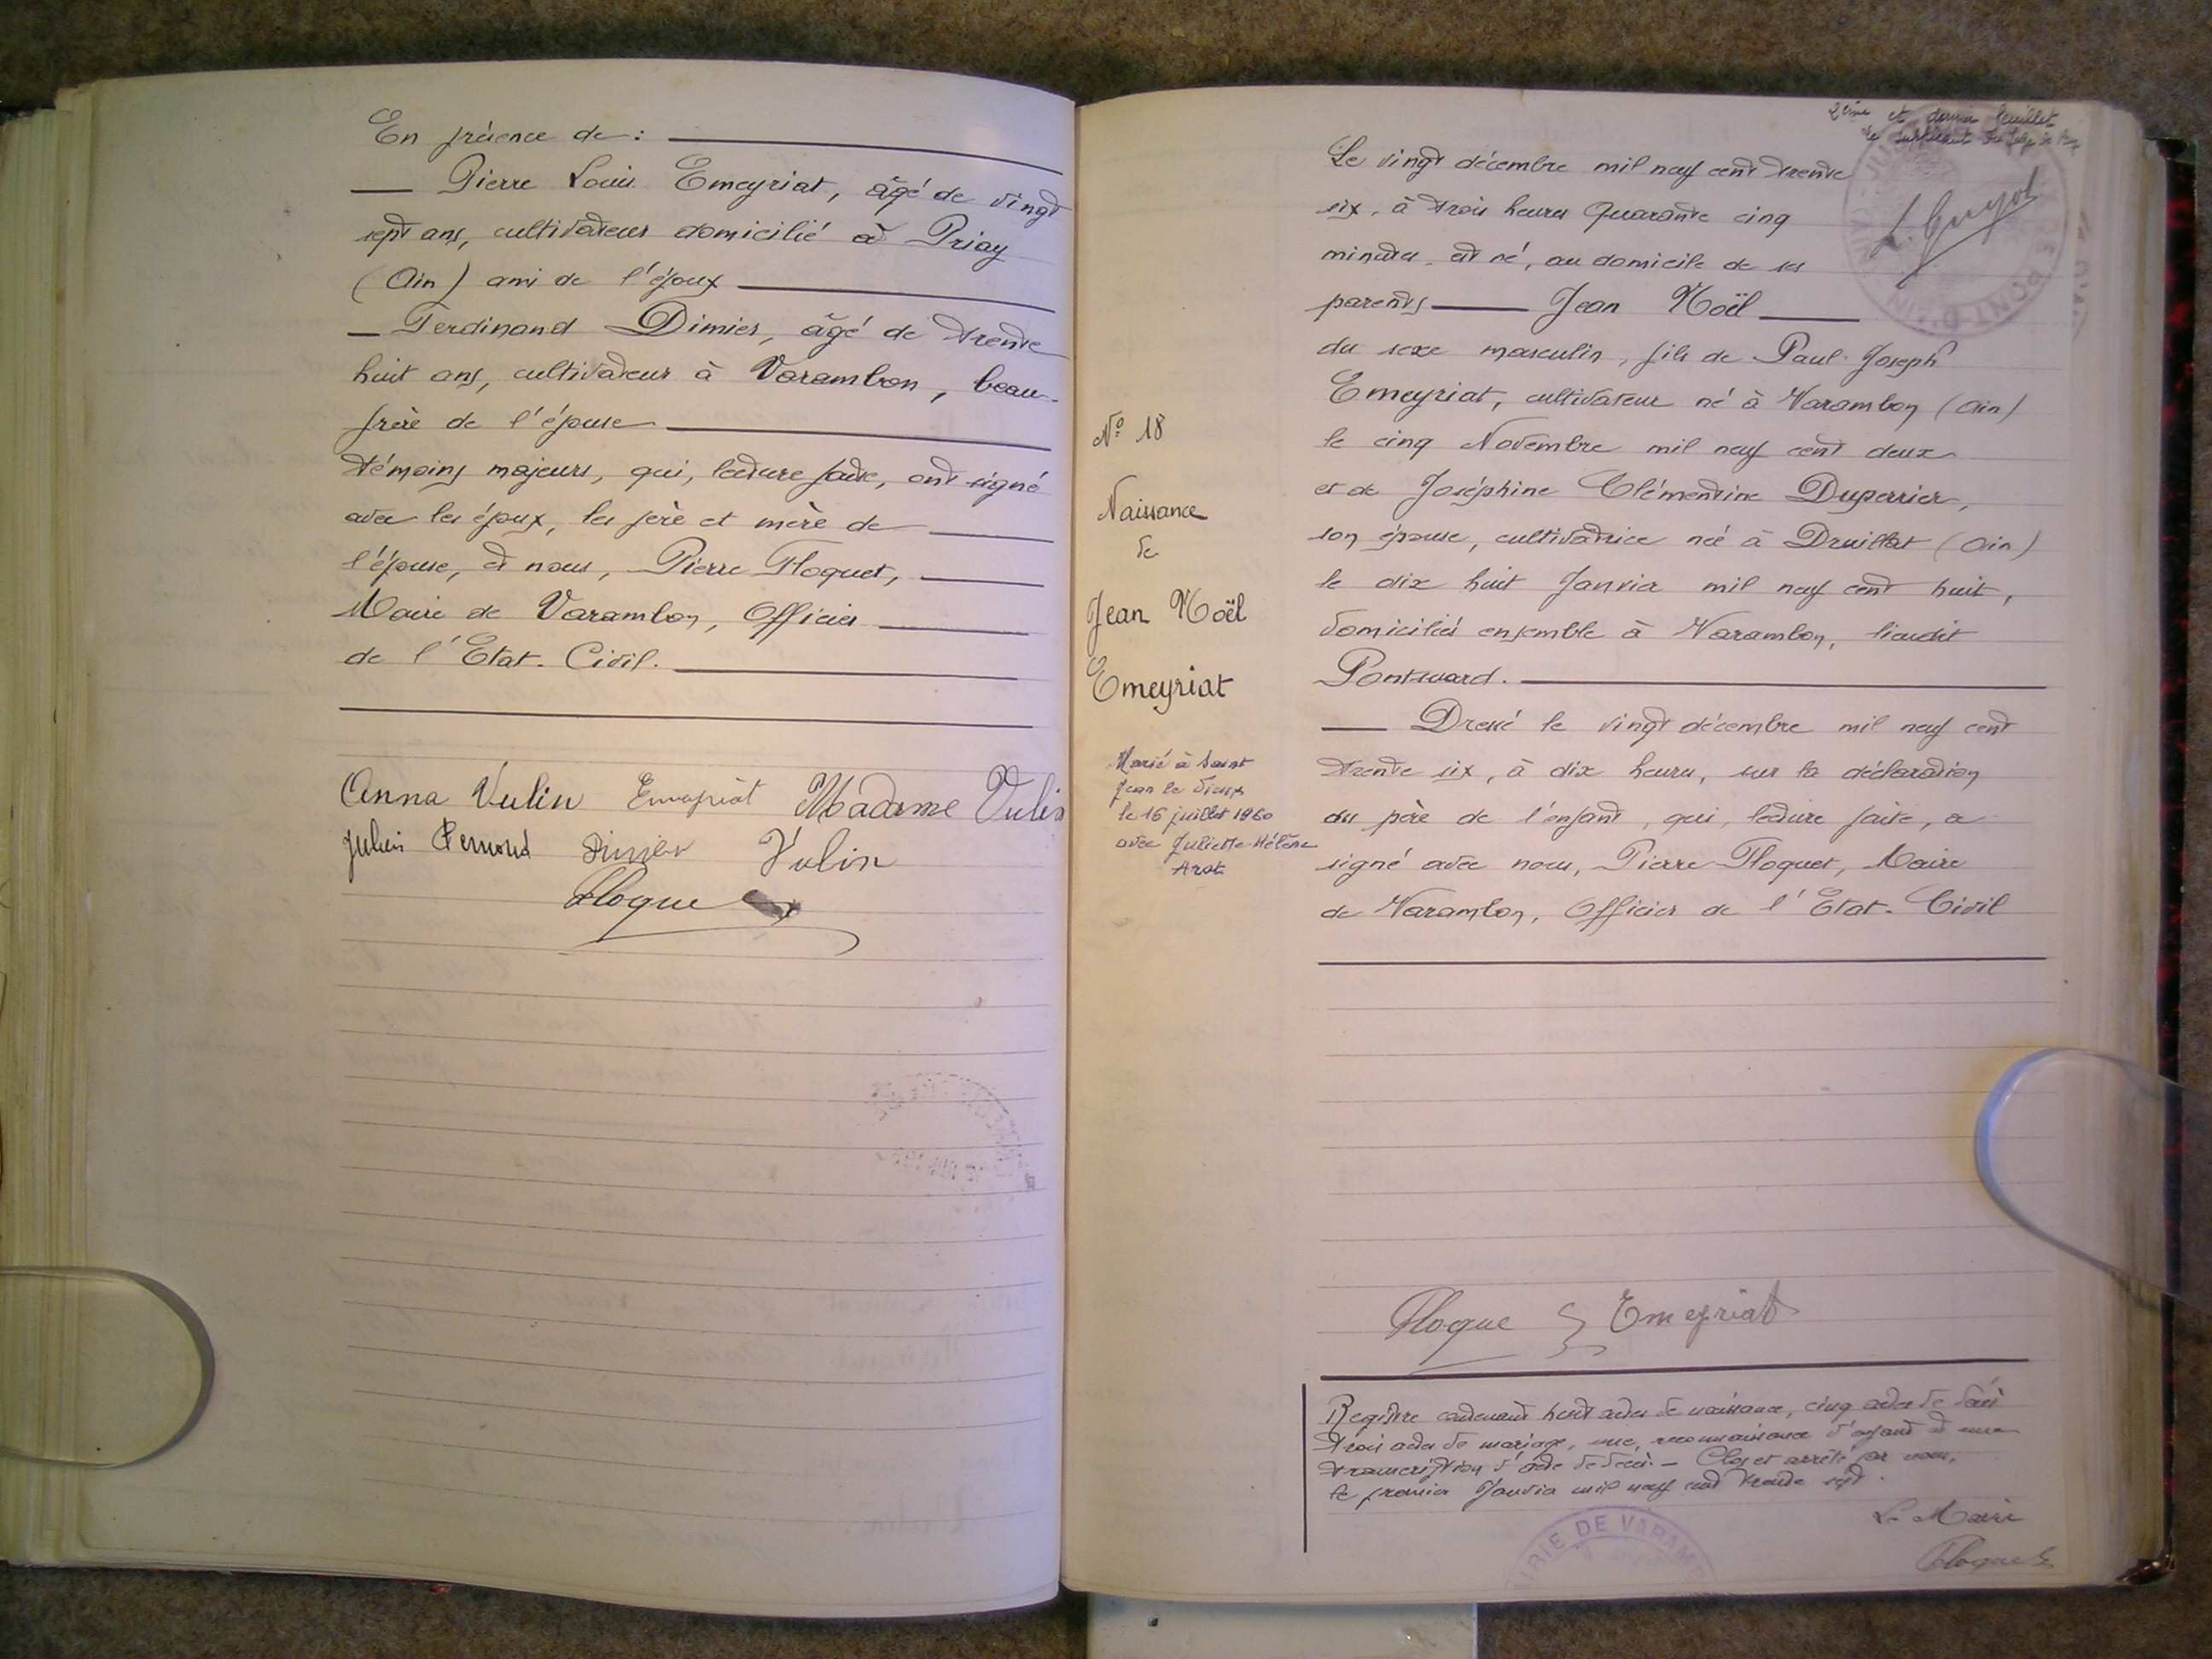 En présence de :
Pierre Louis Emeyriat, âgé de vingt
sept ans, cultivateur domicilié à Priay
(Ain) ami de l'époux
Ferdinand Dimier, âgé de trente
huit ans, cultivateur à Varambon, beau-
frère de l'épouse
témoins majeurs, qui, lecture faite, ont signé
avec les époux, les père et mère de
l'épouse, et nous, Pierre Floquet,
Maire de Varambon, Officier
de l'Etat-Civil.
Anna Vulin Emeyriat Madame Vulin
Julien Dimier Vulin
Floquet
2ème et dernier feuillet
Le suppléant du Juge de Paix
Le vingt décembre mil neuf cent trente
six, à trois heures quarante cinq
minutes, est né, au domicile de ses
parents Jean Noël
du sexe masculin, fils de Paul Joseph
Emeyriat, cultivateur né à Varambon (Ain)
le cinq Novembre mil neuf cent deux
et de Joséphine Clémentine Duperrier,
son épouse, cultivatrice née à Druillat (Ain)
le dix huit Janvier mil neuf cent huit,
domiciliés ensemble à Varambon, lieudit
Dressé le vingt décembre mil neuf cent
trente six, à dix heures, sur la déclaration
du père de l'enfant, qui, lecture faite, a
signé avec nous, Pierre Floquet, Maire
de Varambon, Officier de l'Etat-Civil
N° 18
Naissance
de
Jean Noël
Emeyriat
Marié à Saint
Jean le Vieux
le 16 juillet 1960
avec Juliette Hélène
Floquet Emeyriat
Registre contenant huit actes de naissance, cinq actes de décès
trois actes de mariage, une reconnaissance d'enfant et une
transcription d'acte de décès. - Clos et arrêté par nous,
le premier Janvier mil neuf cent trente sept.
Le Maire
Floquet
MAIRIE DE VARAMB